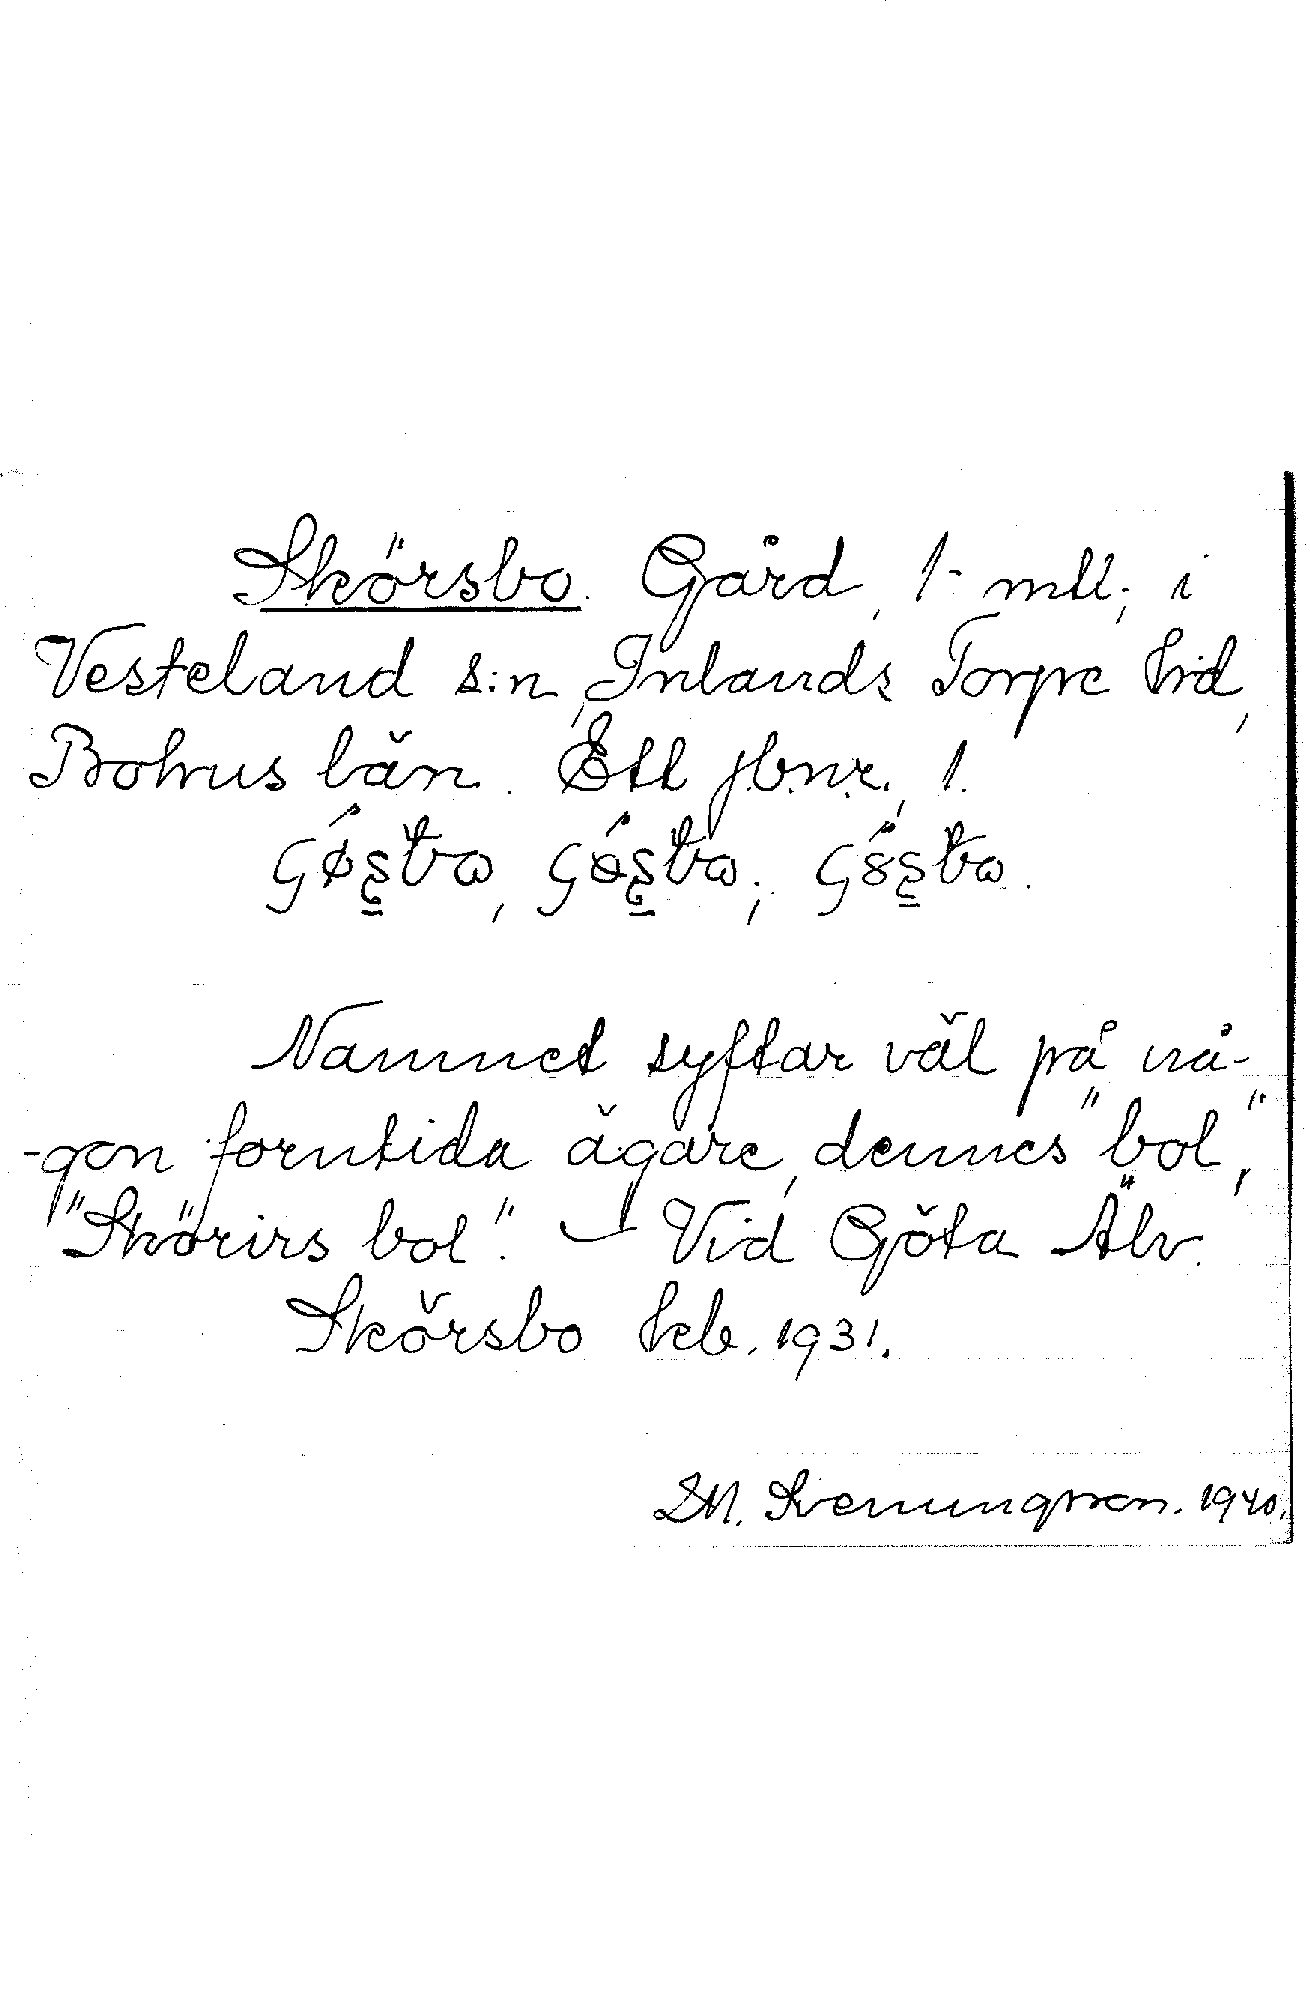 Skörsbo. Gård, 1 mtl; i
Vesteland s:n, Inlands Torpe hrd,
Bohus län. Ett jb.nr., 1.
Namnet syftar väl på nå-
-gon forntida ägare, dennes "bol",
"Skörirs bol". – Vid Göta Älv.
Skörsbo kb. 1931.
LM. Svenungsson. 1940.